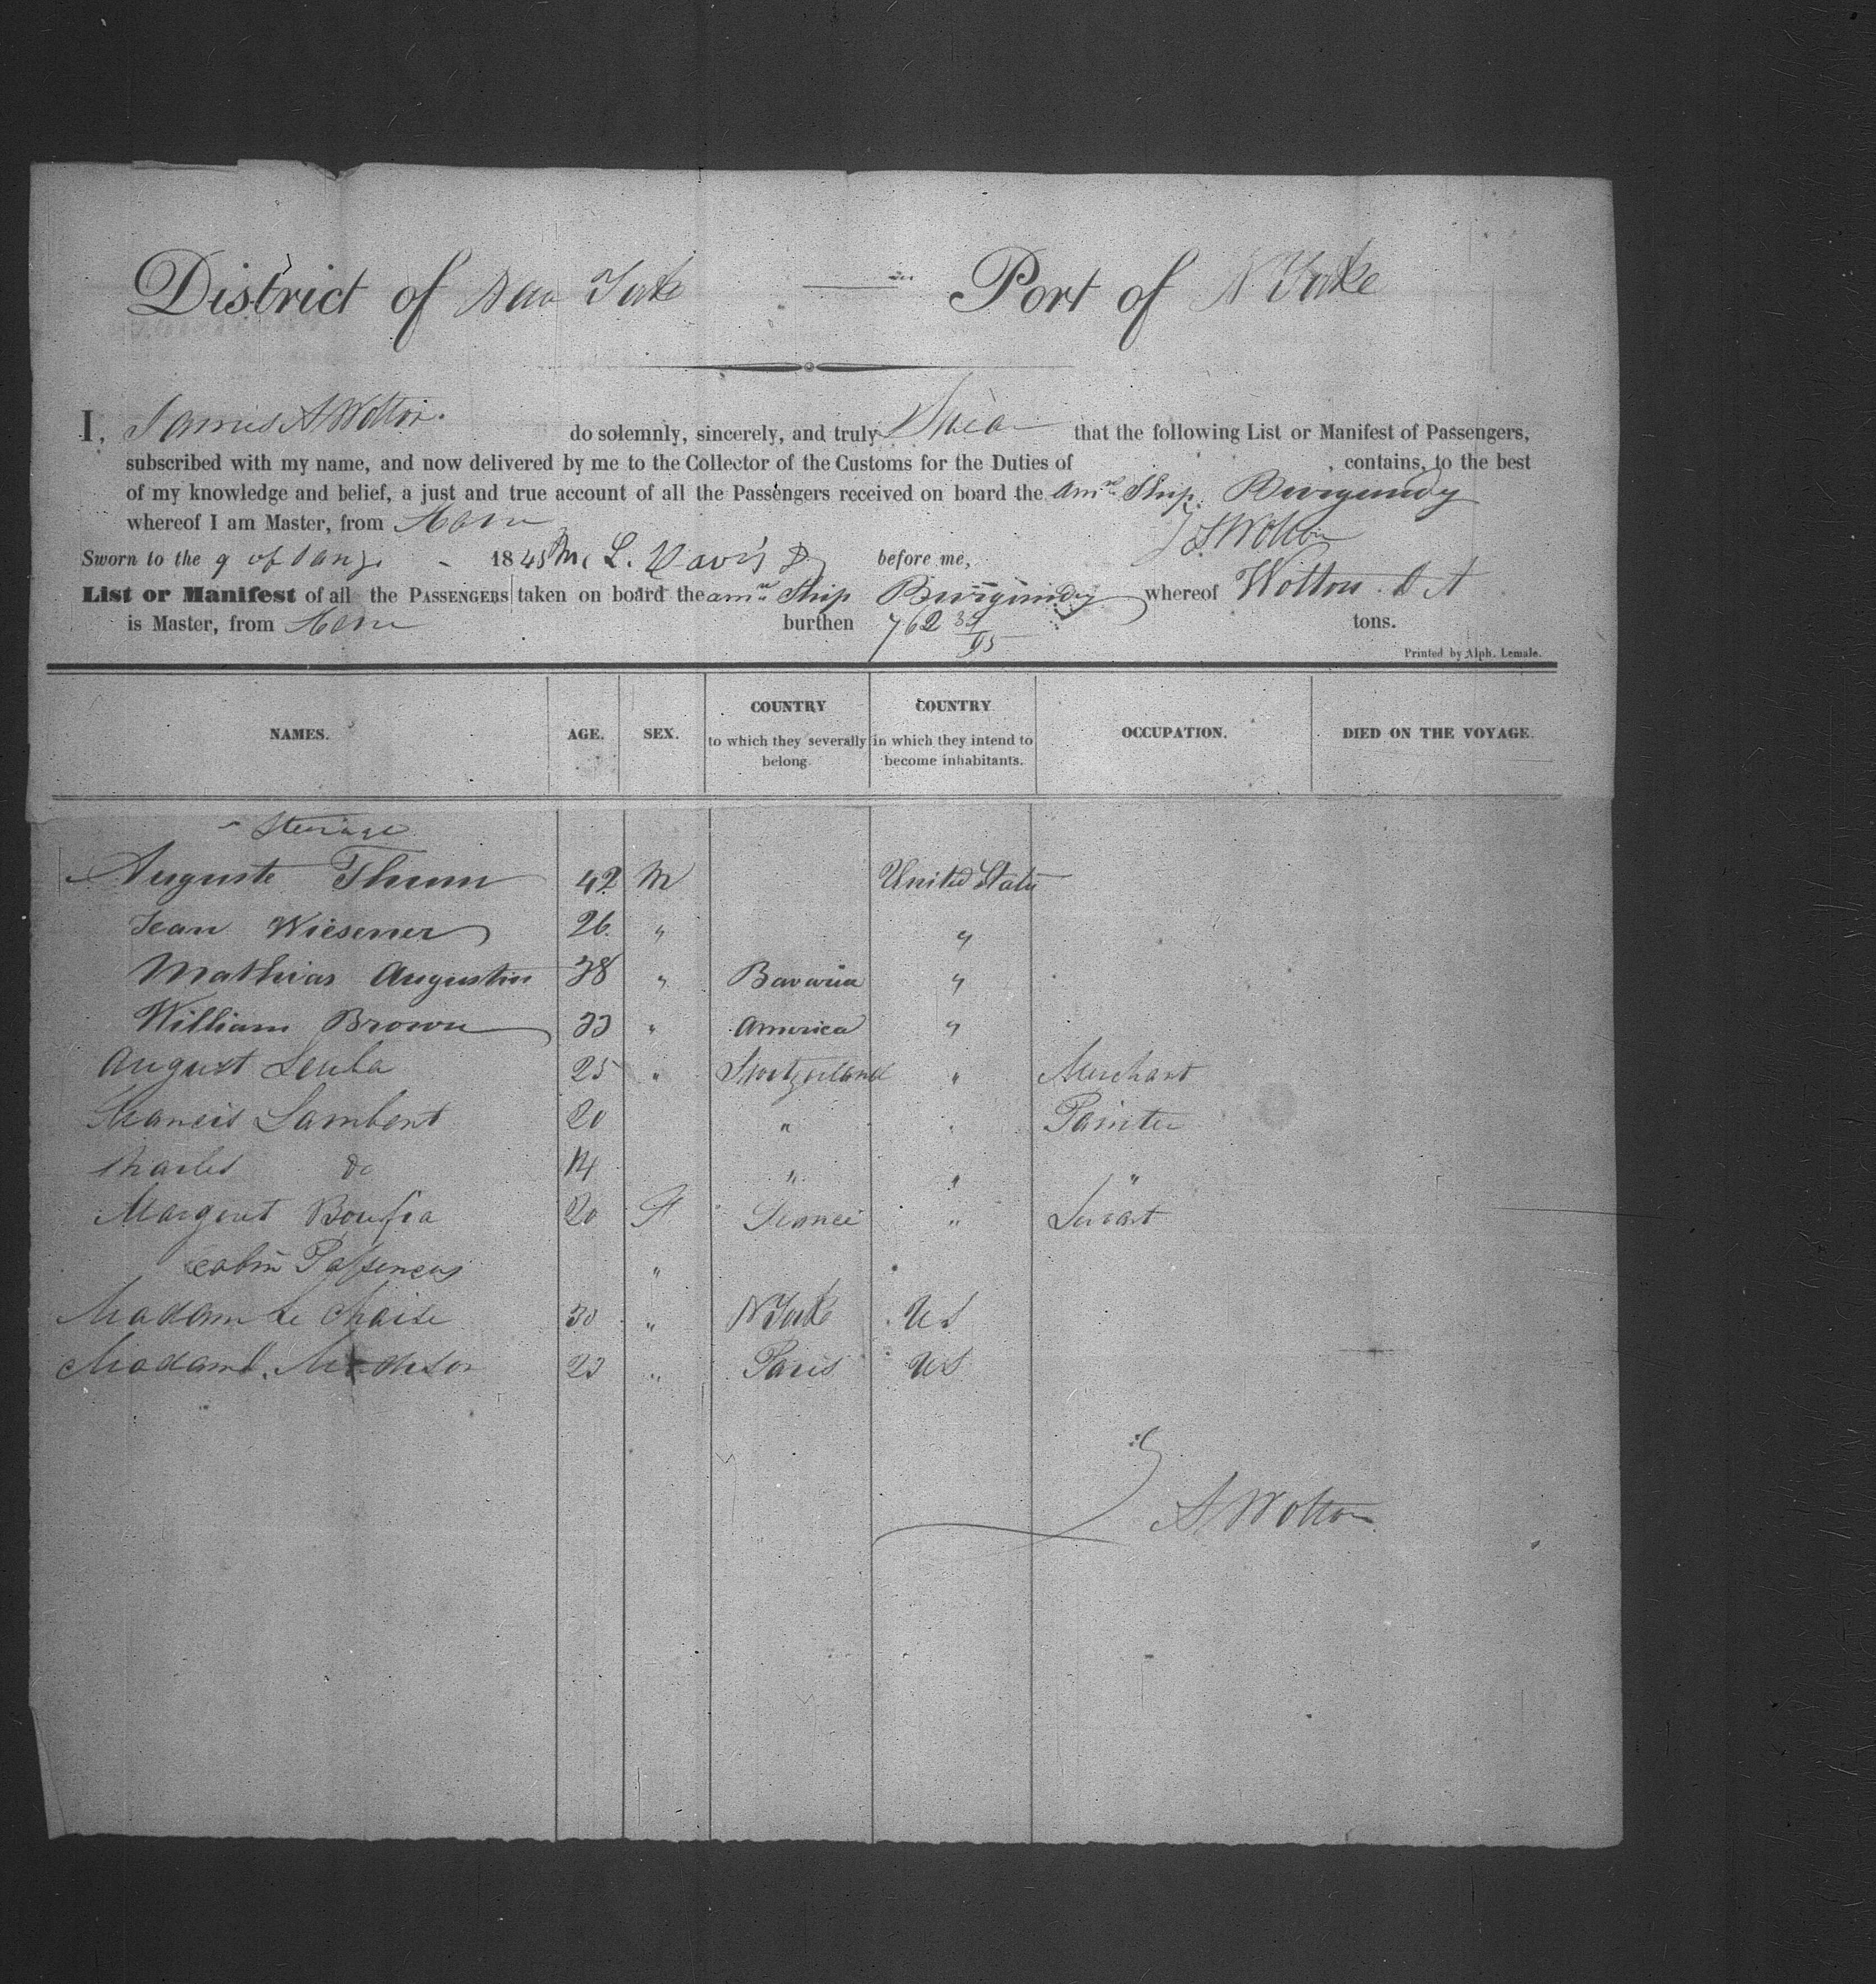 District of New York Port of N York
I, James A Wotton do solemnly, sincerely, and truly Swear that the following List or Manifest of Passengers,
subscribed with my name, and now delivered by me to the Collector of the Customs for the Duties of , contains, to the best
of my knowledge and belief, a just and true account of all the Passengers received on board the Amn Ship Burgundy
whereof I am Master, from Havre
Wotton
Sworn to the 9 of 1845 L. Davis before me,
List or Manifest of all the Passengers taken on board the amn Ship Burgundy whereof Wotton
is Master, from Havre burthen 762 tons.
Printed by Alph. Lemale.
NAMES. AGE. SEX. COUNTRY to which they severally belong. COUNTRY in which they intend to become inhabitants. OCCUPATION. DIED ON THE VOYAGE.
Steerage
Auguste Thum 42 M United States
Jean Wiesener 26 " "
Mathias Augustin 38 " Bavaria "
William Brown 33 " America "
August Leuba 25 " Switzerland " Merchant
Francis Lambert 20 " " Painter
Charles do 14 " " "
Margeret 20 F France " Servant
Cabin Passengers "
Madam Le Chaise 30 " N York U S
Madame 23 " Paris U S
A Wotton